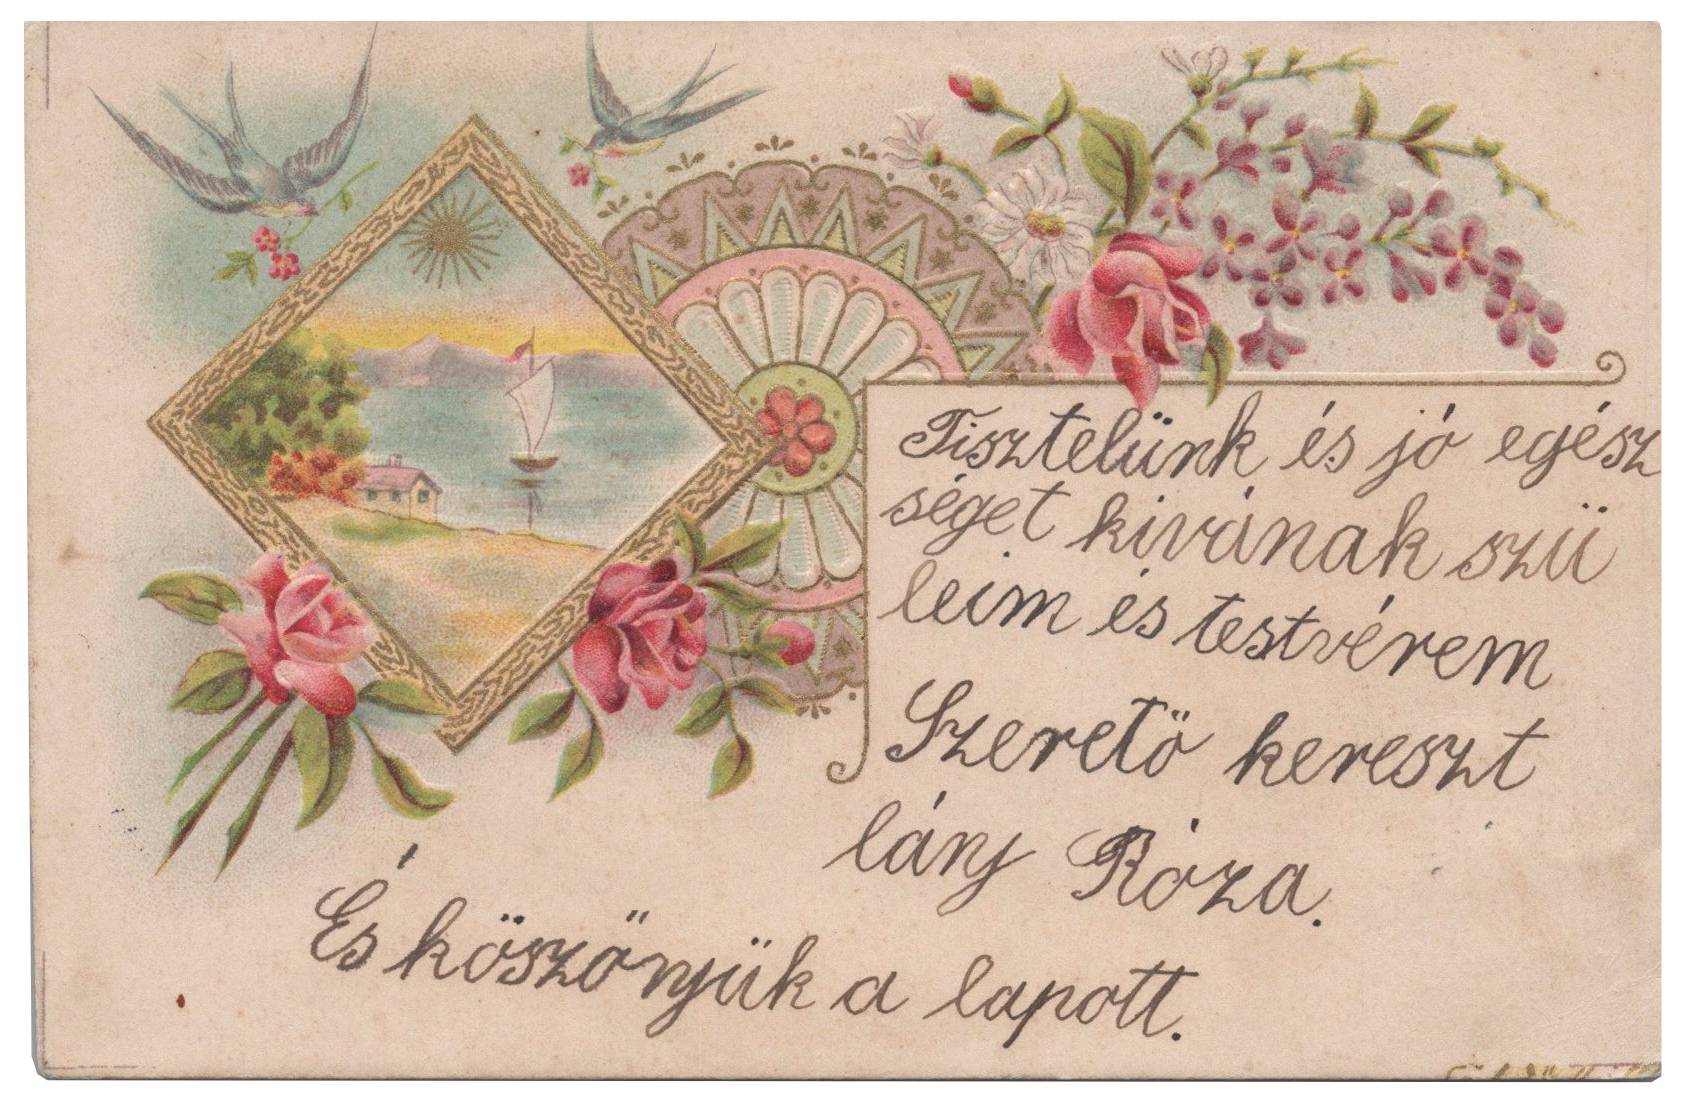 Tisztelünk és jó egész
séget kivának szü
leim és testvérem
Szerető kereszt
lánj Róza.
És köszönjük a lapott.